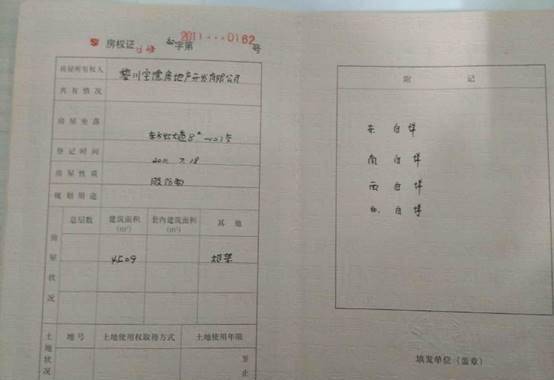 房权证 字第 2011···0162 号
房屋所有权人 房地产开发有限公司
共有情况
房屋坐落
登记时间 2011.7.18
房屋性质
规划用途
房屋状况
总层数 建筑面积(m²) 套内建筑面积(m²) 其他
4509 框架
土地状况
地号 土地使用权取得方式 土地使用年限
至
止
附记
东 自墙
南 自墙
西 自墙
北 自墙
填发单位(盖章)